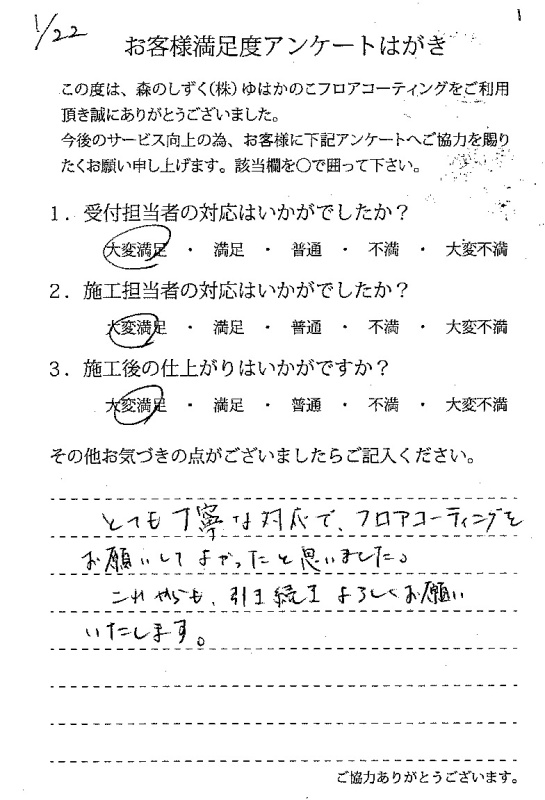 1/22
1
お客様満足度アンケートはがき
この度は、森のしずく(株)ゆはかのこフロアコーティングをご利用
頂き誠にありがとうございました。
今後のサービス向上の為、お客様に下記アンケートへご協力を賜り
たくお願い申し上げます。該当欄を〇で囲って下さい。
1.受付担当者の対応はいかがでしたか?
大変満足 ・ 満足 ・ 普通 ・ 不満 ・ 大変不満
2.施工担当者の対応はいかがでしたか?
大変満足 ・ 満足 ・ 普通 ・ 不満 ・ 大変不満
3.施工後の仕上がりはいかがですか?
大変満足 ・ 満足 ・ 普通 ・ 不満 ・ 大変不満
その他お気づきの点がございましたらご記入ください。
とても丁寧な対応で、フロアコーティングを
お願いしてよかったと思いました。
これからも、引き続きよろしくお願い
いたします。
ご協力ありがとうございます。